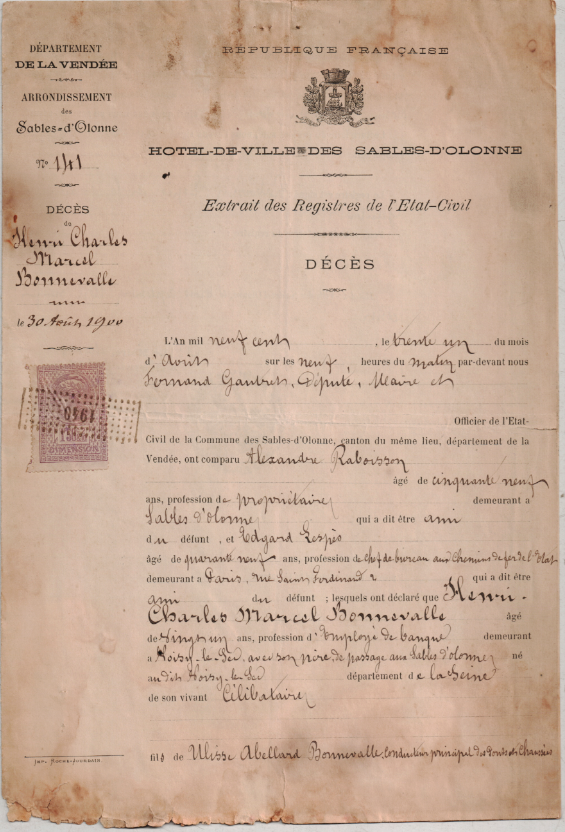 DÉPARTEMENT
DE LA VENDÉE
ARRONDISSEMENT
des
Sables-d'Olonne
N° 141
DÉCÈS
de
Henri Charles
Marcel
Bonnevalle
le 30 Août 1900
1910
DIMENSION
REPUBLIQUE FRANÇAISE
HOTEL-DE-VILLE DES SABLES-D'OLONNE
Extrait des Registres de l'Etat-Civil
DÉCÈS
L'An mil neuf cent, le trente un du mois
d'Août sur les neuf, heures du matin par-devant nous
Fernand Gautret, Député, Maire et
Officier de l'Etat-
Civil de la Commune des Sables-d'Olonne, canton du même lieu, département de la
Vendée, ont comparu Alexandre Raboisson
âgé de cinquante neuf
ans, profession de propriétaire demeurant a
Sables d'olonne qui a dit être ami
du défunt, et Edgard Lespès
âgé de quarante neuf ans, profession de chef de bureau aux chemins de fer de l'Etat
demeurant a Paris, rue Saint Ferdinand 2 qui a dit être
ami du défunt; lesquels ont déclaré que Henri-
Charles Marcel Bonnevalle âgé
de vingt-un ans, profession d'Employé de banque demeurant
a Noisy-le-Sec, avec son père, de passage aux Sables d'olonne né
au dit Noisy-le-Sec département de la Seine
de son vivant Célibataire
fils de Ulisse Abellard Bonnevalle, Conducteur principal des Ponts et Chaussées
IMP. ROCHE-JOURDAIN